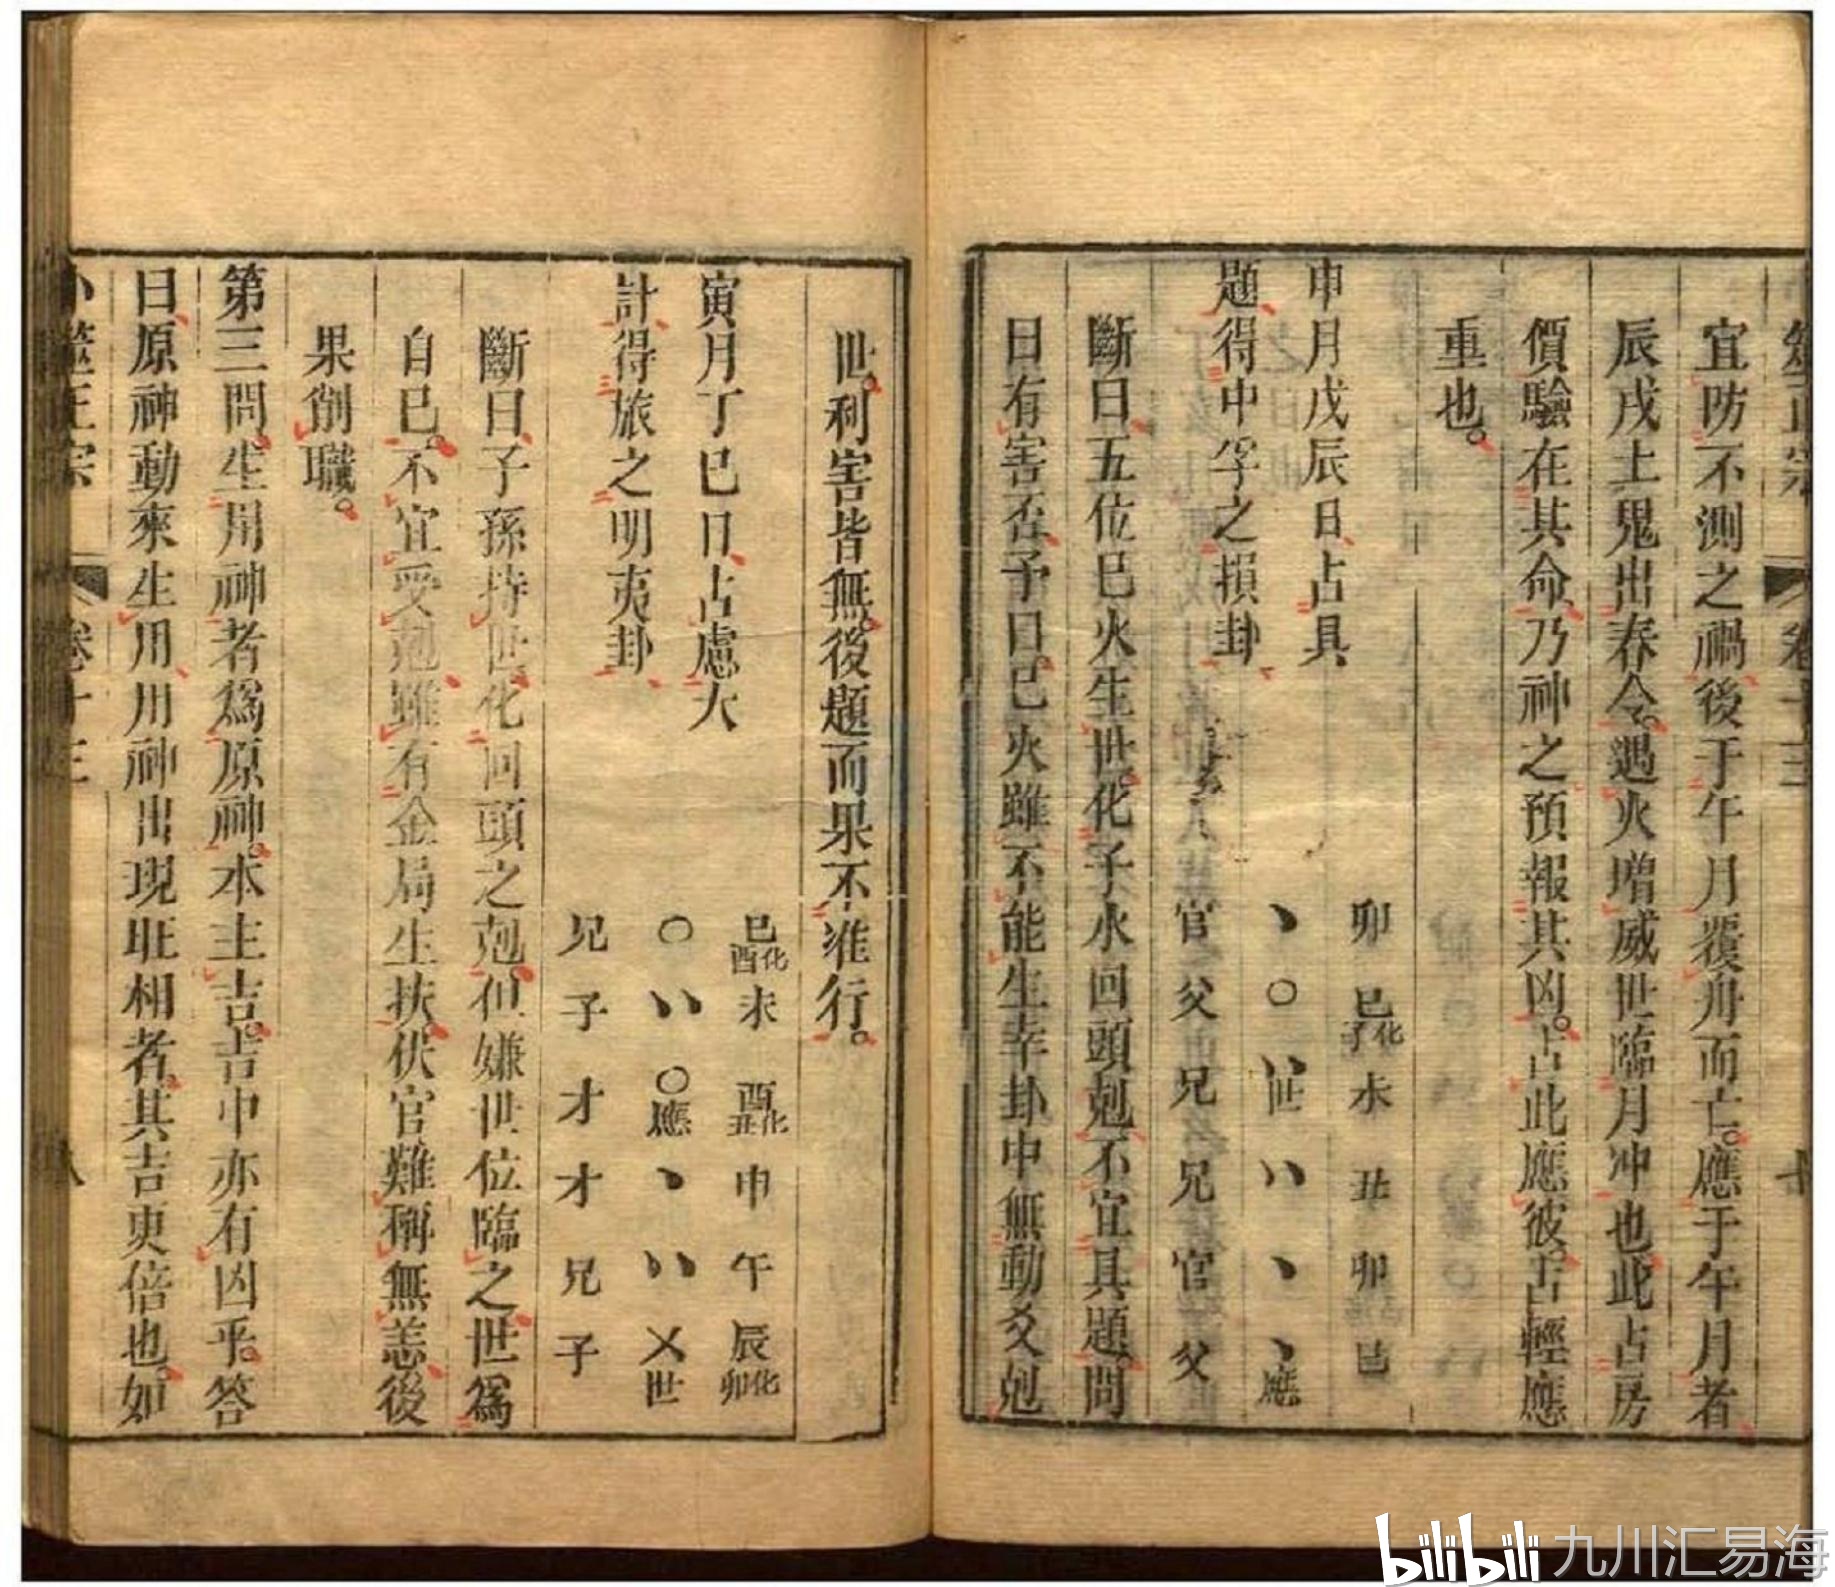 筮正宗 卷十三
宜防不測之禍後于午月覆舟而亡。應于午月者
辰戌土鬼出春令。遇火增威世臨月冲也此占房
價驗在其命乃神之預報其凶。占此應彼占輕應
重也。
申月戊辰日占具
題得中孚之損卦
卯 巳化子 未 丑 卯 巳
丶 〇 八世 八 丶 丶應
官 父 兄 兄 官 父
斷曰五位巳火生世。化子水回頭尅不宜具題。問
曰有害否予曰巳火雖不能生幸卦中無動爻尅
世。利害皆無。後題而果不准行。
寅月丁巳日占慮大
計得旅之明夷卦
巳化酉 未 酉化丑 申 午 辰化卯
〇 八 〇應 丶 八 乂世
兄 子 才 才 兄 子
斷曰子孫持世化回頭之尅但嫌世位臨之世爲
自己。不宜受尅雖有金局生扶伏官難稱無恙後
果削職。
第三問生用神者爲原神。本主吉。吉中亦有凶乎。答
曰原神動來生用用神出現旺相者其吉更倍也。如
卜筮正宗 卷十三 八
bilibili 九川汇易海